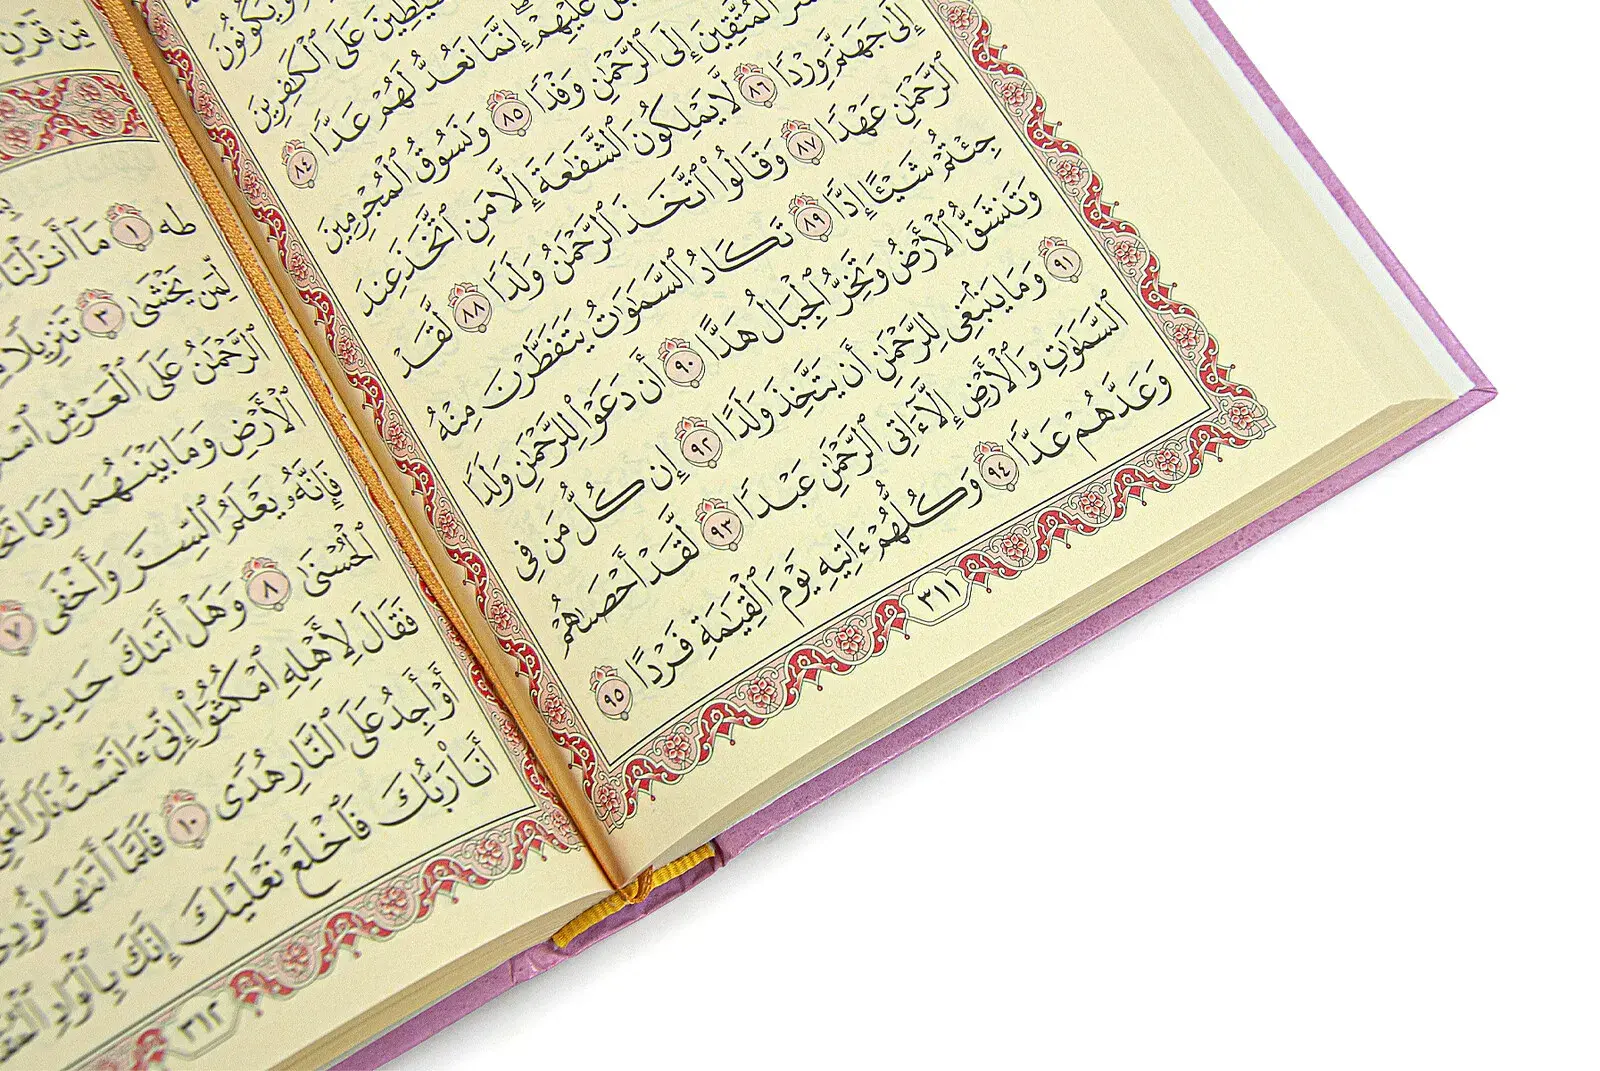 وَيَكُونُونَ
عَلَى ٱلْكَٰفِرِينَ
عَلَيْهِمْ إِنَّمَا نَعُدُّ لَهُمْ عَدًّا ٨٤
ٱلْمُتَّقِينَ إِلَى ٱلرَّحْمَٰنِ وَفْدًا ٨٥ وَنَسُوقُ ٱلْمُجْرِمِينَ
إِلَىٰ جَهَنَّمَ وِرْدًا ٨٦ لَّا يَمْلِكُونَ ٱلشَّفَٰعَةَ إِلَّا مَنِ ٱتَّخَذَ عِندَ
ٱلرَّحْمَٰنِ عَهْدًا ٨٧ وَقَالُوا۟ ٱتَّخَذَ ٱلرَّحْمَٰنُ وَلَدًا ٨٨ لَّقَدْ
جِئْتُمْ شَيْـًٔا إِدًّا ٨٩ تَكَادُ ٱلسَّمَٰوَٰتُ يَتَفَطَّرْنَ مِنْهُ
وَتَنشَقُّ ٱلْأَرْضُ وَتَخِرُّ ٱلْجِبَالُ هَدًّا ٩٠ أَن دَعَوْا۟ لِلرَّحْمَٰنِ وَلَدًا
٩١ وَمَا يَنۢبَغِى لِلرَّحْمَٰنِ أَن يَتَّخِذَ وَلَدًا ٩٢ إِن كُلُّ مَن فِى
ٱلسَّمَٰوَٰتِ وَٱلْأَرْضِ إِلَّآ ءَاتِى ٱلرَّحْمَٰنِ عَبْدًا ٩٣ لَّقَدْ أَحْصَىٰهُمْ
وَعَدَّهُمْ عَدًّا ٩٤ وَكُلُّهُمْ ءَاتِيهِ يَوْمَ ٱلْقِيَٰمَةِ فَرْدًا ٩٥
٣١١
مِّن قَرْنٍ
طه ١ مَآ أَنزَلْنَا
لِّمَن يَخْشَىٰ ٣ تَنزِيلًا
ٱلرَّحْمَٰنُ عَلَى ٱلْعَرْشِ
ٱلْأَرْضِ وَمَا بَيْنَهُمَا وَمَا
فَإِنَّهُۥ يَعْلَمُ ٱلسِّرَّ وَأَخْفَى ٧
ٱلْحُسْنَىٰ ٨ وَهَلْ أَتَىٰكَ حَدِيثُ
فَقَالَ لِأَهْلِهِ ٱمْكُثُوٓا۟ إِنِّىٓ ءَانَسْتُ نَارًا لَّعَلِّىٓ
أَوْ أَجِدُ عَلَى ٱلنَّارِ هُدًى ١٠ فَلَمَّآ أَتَىٰهَا نُودِىَ
أَنَا۠ رَبُّكَ فَٱخْلَعْ نَعْلَيْكَ إِنَّكَ بِٱلْوَادِ
٣١٢